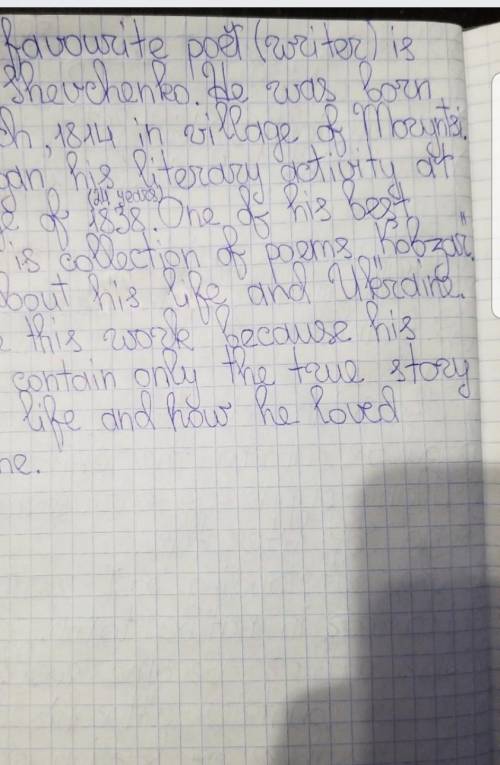 favourite poet (writer) is
Shevchenko. He was born
ch, 1814 in village of Moryntsi.
gan his literary activity at
(24 years)
e of 1838. One of his best
is collection of poems "Kobzar".
about his life and Ukraine.
e this work because his
contain only the true story
life and how he loved
ne.